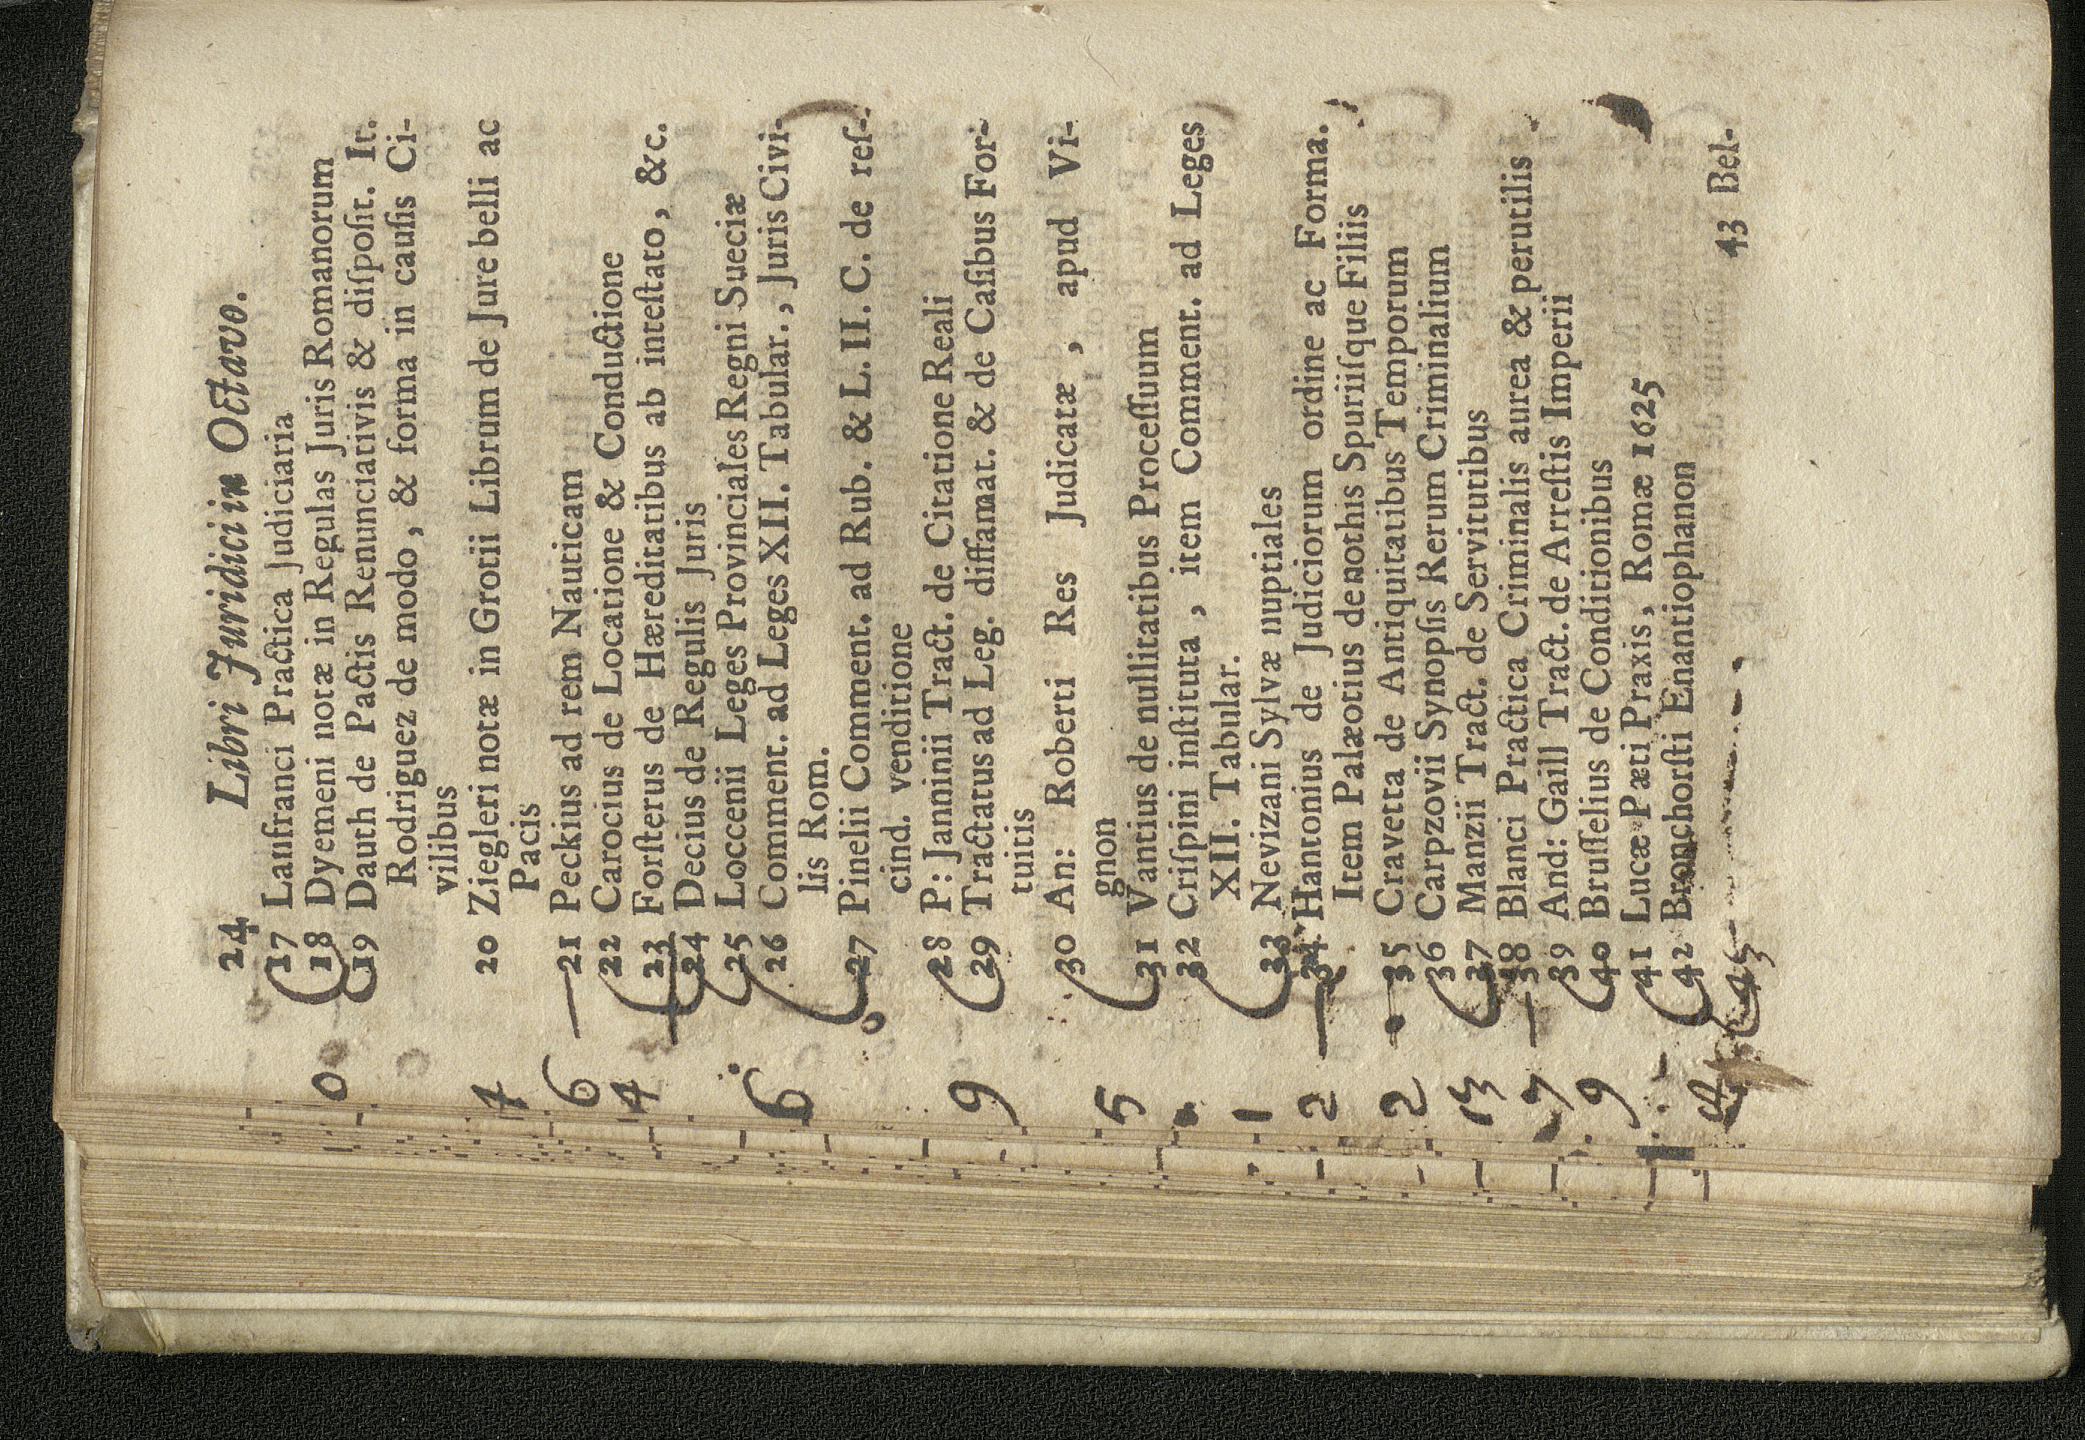 24 Libri Juridici in Octavo.
17 Lanfranci Practica Judiciaria
0 18 Dyemeni notæ in Regulas Juris Romanorum
19 Dauth de Pactis Renunciativis & diſpoſit. It.
Rodriguez de modo, & forma in cauſis Ci-
vilibus
4 20 Ziegleri notæ in Grotii Librum de Jure belli ac
Pacis
6 21 Peckius ad rem Nauticam
4 22 Carocius de Locatione & Conductione
23 Forſterus de Hæreditatibus ab inteſtato, &c.
24 Decius de Regulis Juris
25 Loccenii Leges Provinciales Regni Sueciæ
6 26 Comment. ad Leges XII. Tabular., Juris Civi-
lis Rom.
0 27 Pinelii Comment. ad Rub. & L. II. C. de reſ-
cind. venditione
28 P: Janninii Tract. de Citatione Reali
9 29 Tractatus ad Leg. diffamat. & de Caſibus For-
tuitis
30 An: Roberti Res Judicatæ, apud Vi-
gnon
5 31 Vantius de nullitatibus Proceſſuum
32 Criſpini inſtituta, item Comment. ad Leges
XII. Tabular.
1 33 Nevizani Sylvæ nuptiales
2 34 Hantonius de Judiciorum ordine ac Forma.
Item Palæotius de nothis Spuriiſque Filiis
2 35 Cravetta de Antiquitatibus Temporum
36 Carpzovii Synopſis Rerum Criminalium
13 37 Manzii Tract. de Servitutibus
7 38 Blanci Practica Criminalis aurea & perutilis
39 And: Gaill Tract. de Arreſtis Imperii
9 40 Bruſſelius de Conditionibus
41 Lucæ Pæti Praxis, Romæ 1625
42 Bronchorſti Enantiophanon
43
43 Bel-